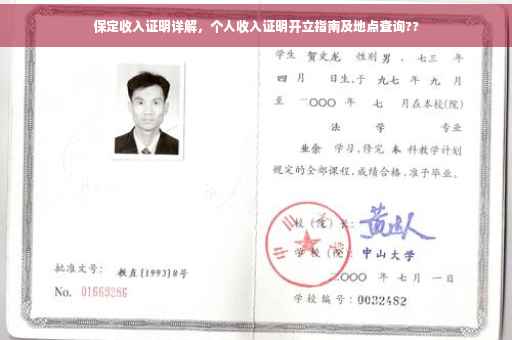 保定收入证明详解，个人收入证明开立指南及地点查询??
学生 贺文龙 性别 男，七三 年
四 月 日生，于 九七 年 九 月
至 二〇〇〇 年 七 月在本校(院)
法 学 专业
业余 学习，修完 本 科教学计划
规定的全部课程，成绩合格，准予毕业。
校（院）长：
学 校（院）：中山大学
二〇〇〇 年 七 月 一 日
批准文号： 教直[1993]8号
No. 01669286
学校编号：0032482